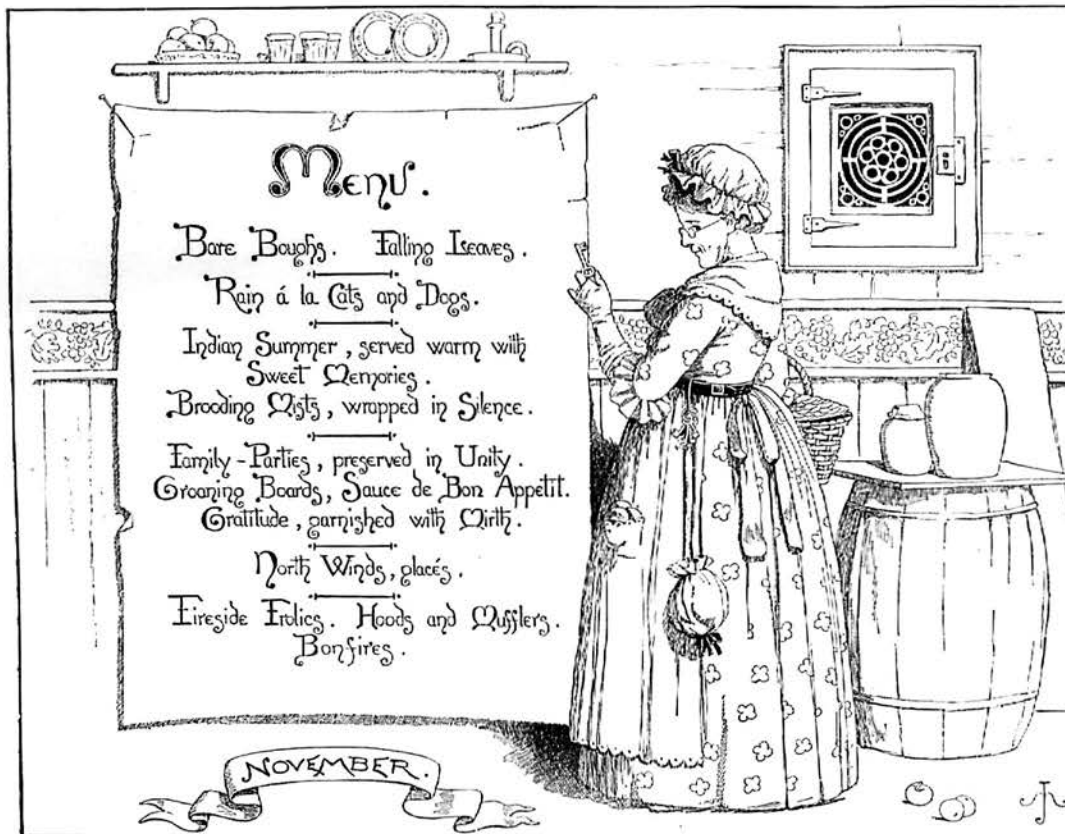 Menu.
Bare Boughs. Falling Leaves.
Rain á la Cats and Dogs.
Indian Summer, served warm with
Sweet Memories.
Brooding Mists, wrapped in Silence.
Family-Parties, preserved in Unity.
Groaning Boards, Sauce de Bon Appetit.
Gratitude, garnished with Mirth.
North Winds, glacés.
Fireside Frolics. Hoods and Mufflers.
Bonfires.
NOVEMBER.